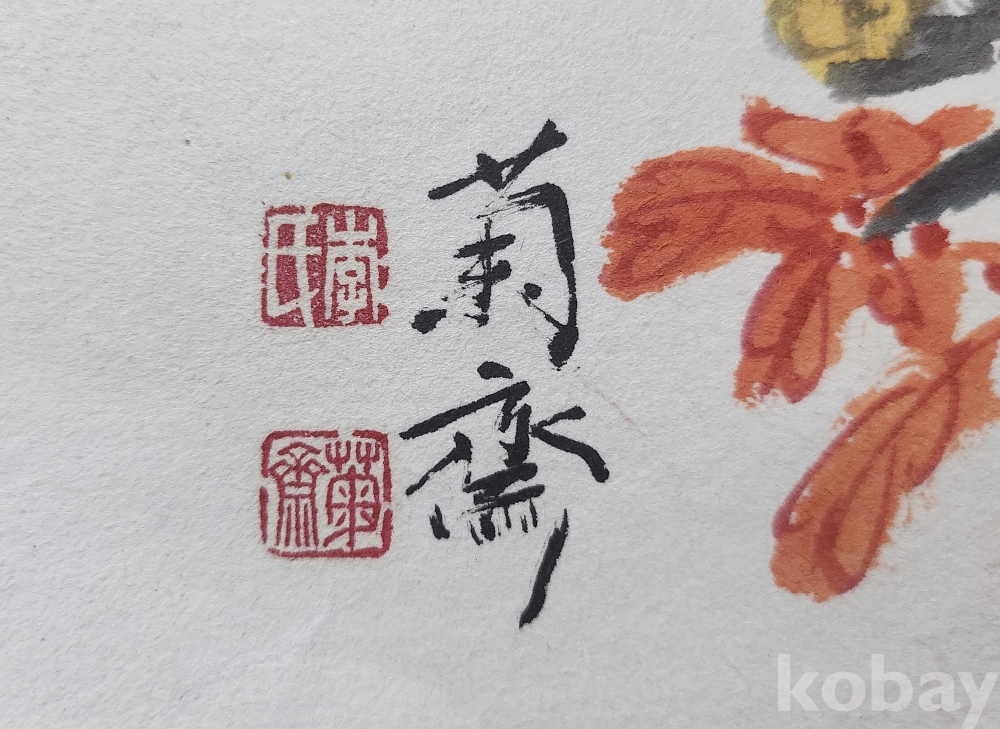 菊齋
氏
菊齋
kobay